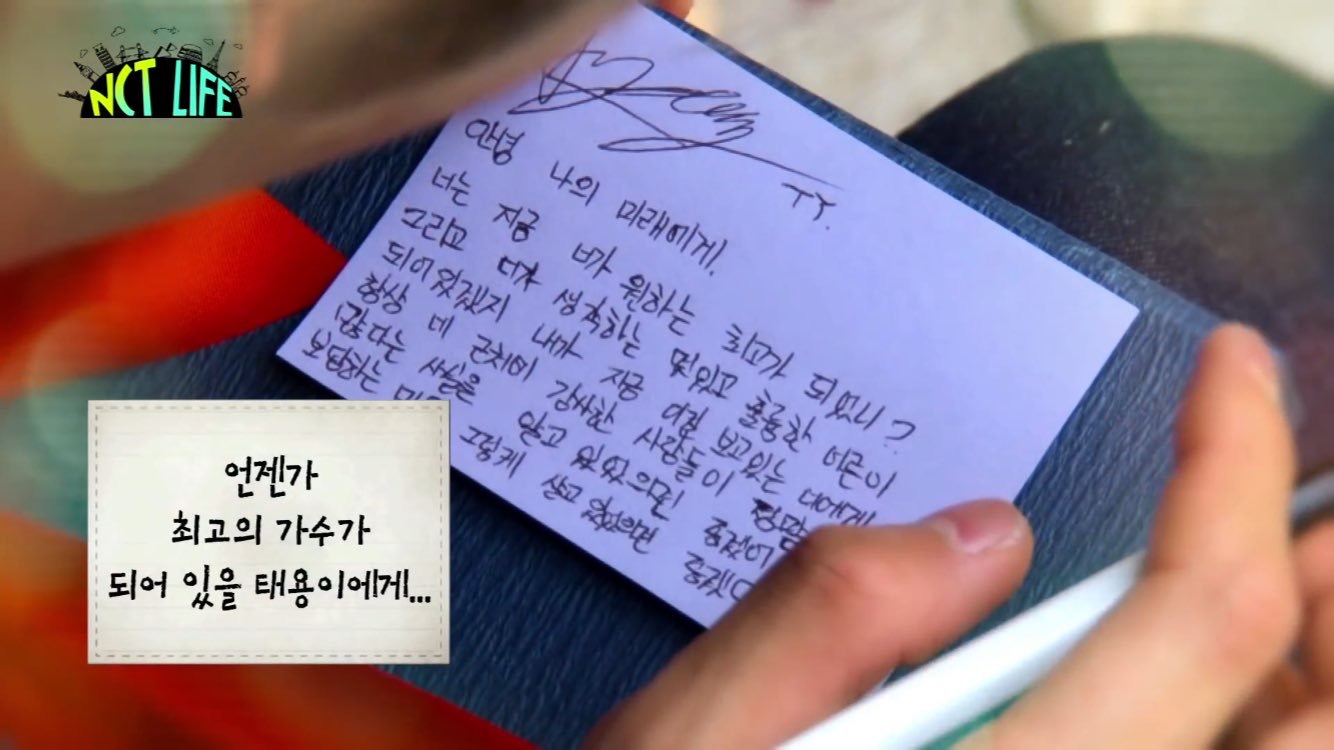 NCT LIFE
TY.
안녕 나의 미래에게.
너는 지금 네가 원하는 최고가 되었니?
그리고 너가 생각하는 멋있고 훌륭한 어른이
되어있겠지 내가 지금 여길 보고있는 너에게
항상 네 근처에 감사한 사람들이 정말
많다는 사실을 알고 있었으면 좋겠어
보답하는 그렇게 살고 있었으면 좋겠다
언젠가
최고의 가수가
되어 있을 태용이에게...